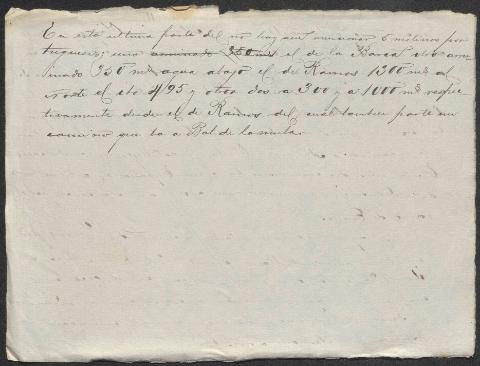 En esta ultima parte del rio hay aun 6 molinos por
tugueses; uno 350 ms el de la Barca otro arru
inado 350 ms agua abajo el de Ramos 1300 ms al
Norte el sto 4/25 y otros dos a 300 y a 1000 ms respec
tivamente desde el de Ramos del cual tambien parte un
camino que va a Bal de la mula.